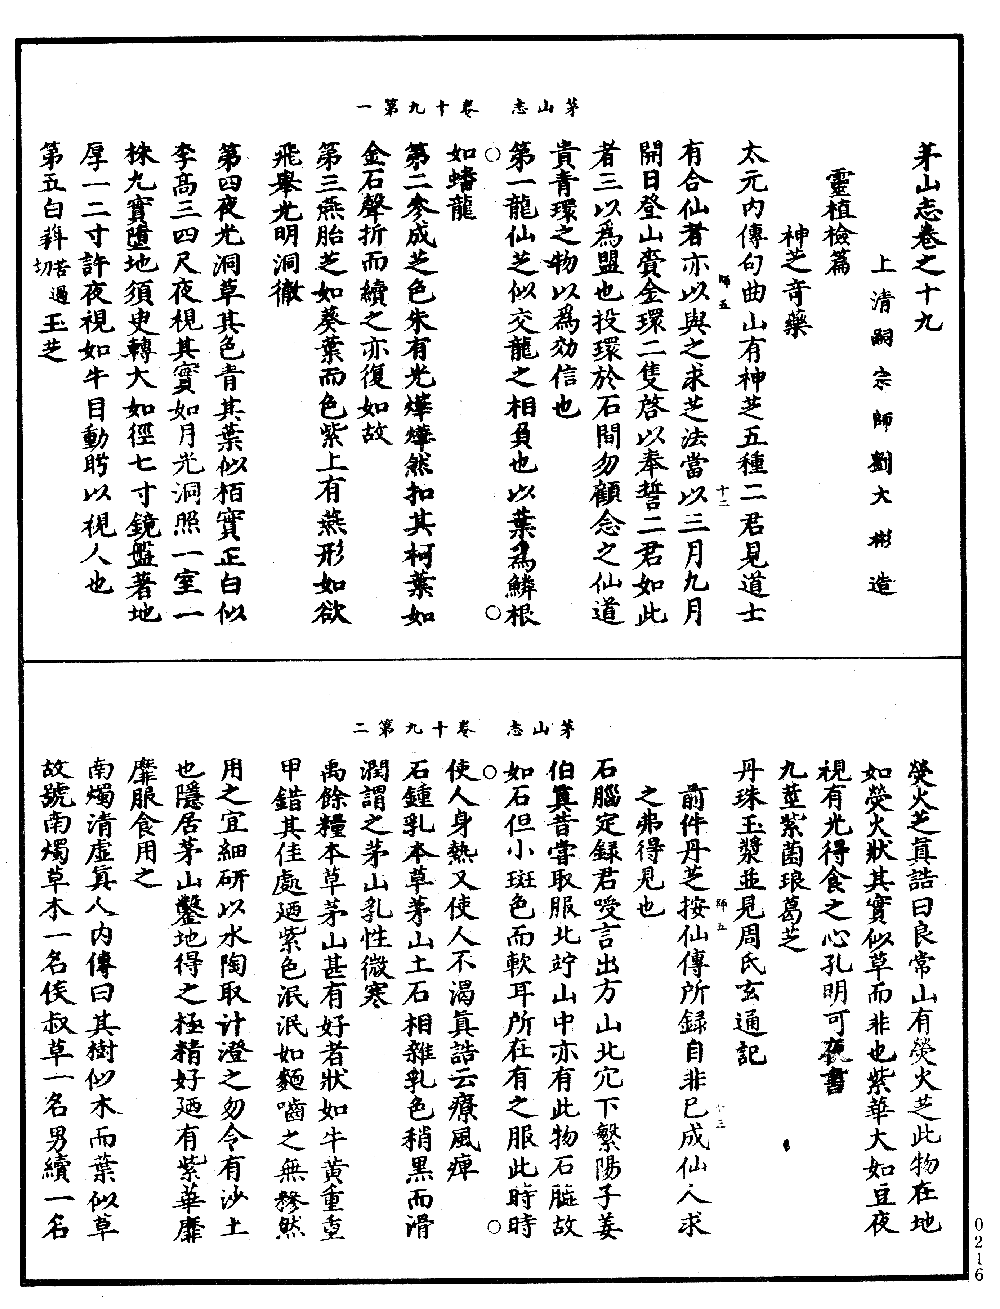 茅山志　卷十九第一
茅山志卷之十九
上清嗣宗師劉大彬造
靈植檢篇
神芝奇藥
太元內傳句曲山有神芝五種二君見道士
有合仙者亦以與之求芝法當以三月九月
開日登山賫金環二隻啓以奉誓二君如此
者三以為盟也投環於石間勿顧念之仙道
貴青環之物以為効信也
第一龍仙芝似交龍之相負也以葉為鱗根
如蟠龍
第二參成芝色朱有光燁燁然扣其柯葉如
金石聲折而續之亦復如故
第三燕胎芝如葵葉而色紫上有燕形如欲
飛舉光明洞徹
第四夜光洞草其色青其葉似栢實正白似
李高三四尺夜視其實如月光洞照一室一
株九實墮地須臾轉大如徑七寸鏡盤著地
厚一二寸許夜視如牛目動眄以視人也
第五白科苦過切玉芝
茅山志　卷十九第二
熒火芝真誥曰良常山有熒火芝此物在地
如熒火狀其實似草而非也紫華大如豆夜
視有光得食之心孔明可夜書
九莖紫菌琅葛芝
丹珠玉漿並見周氏玄通記
前件丹芝按仙傳所錄自非已成仙人求
之弗得見也
石腦定錄君嘜言出方山北穴下繫陽子姜
伯真昔嘗取服北竚山中亦有此物石腦故
如石但小斑色而軟耳所在有之服此時時
使人身熱又使人不渴真誥云療風痺
石鍾乳本草茅山土石相雜乳色稍黑而滑
潤謂之茅山乳性微寒
禹餘糧本草茅山甚有好者狀如牛黃重重
甲錯其佳處廼紫色泯泯如麵嚙之無糝然
用之宜細研以水陶取汁澄之勿令有沙土
也隱居茅山鑿地得之極精好廼有紫華靡
靡服食用之
南燭清虛真人內傳曰其樹似木而葉似草
故號南燭草木一名侯叔草一名男續一名
師五
十二
師五
十三
0216